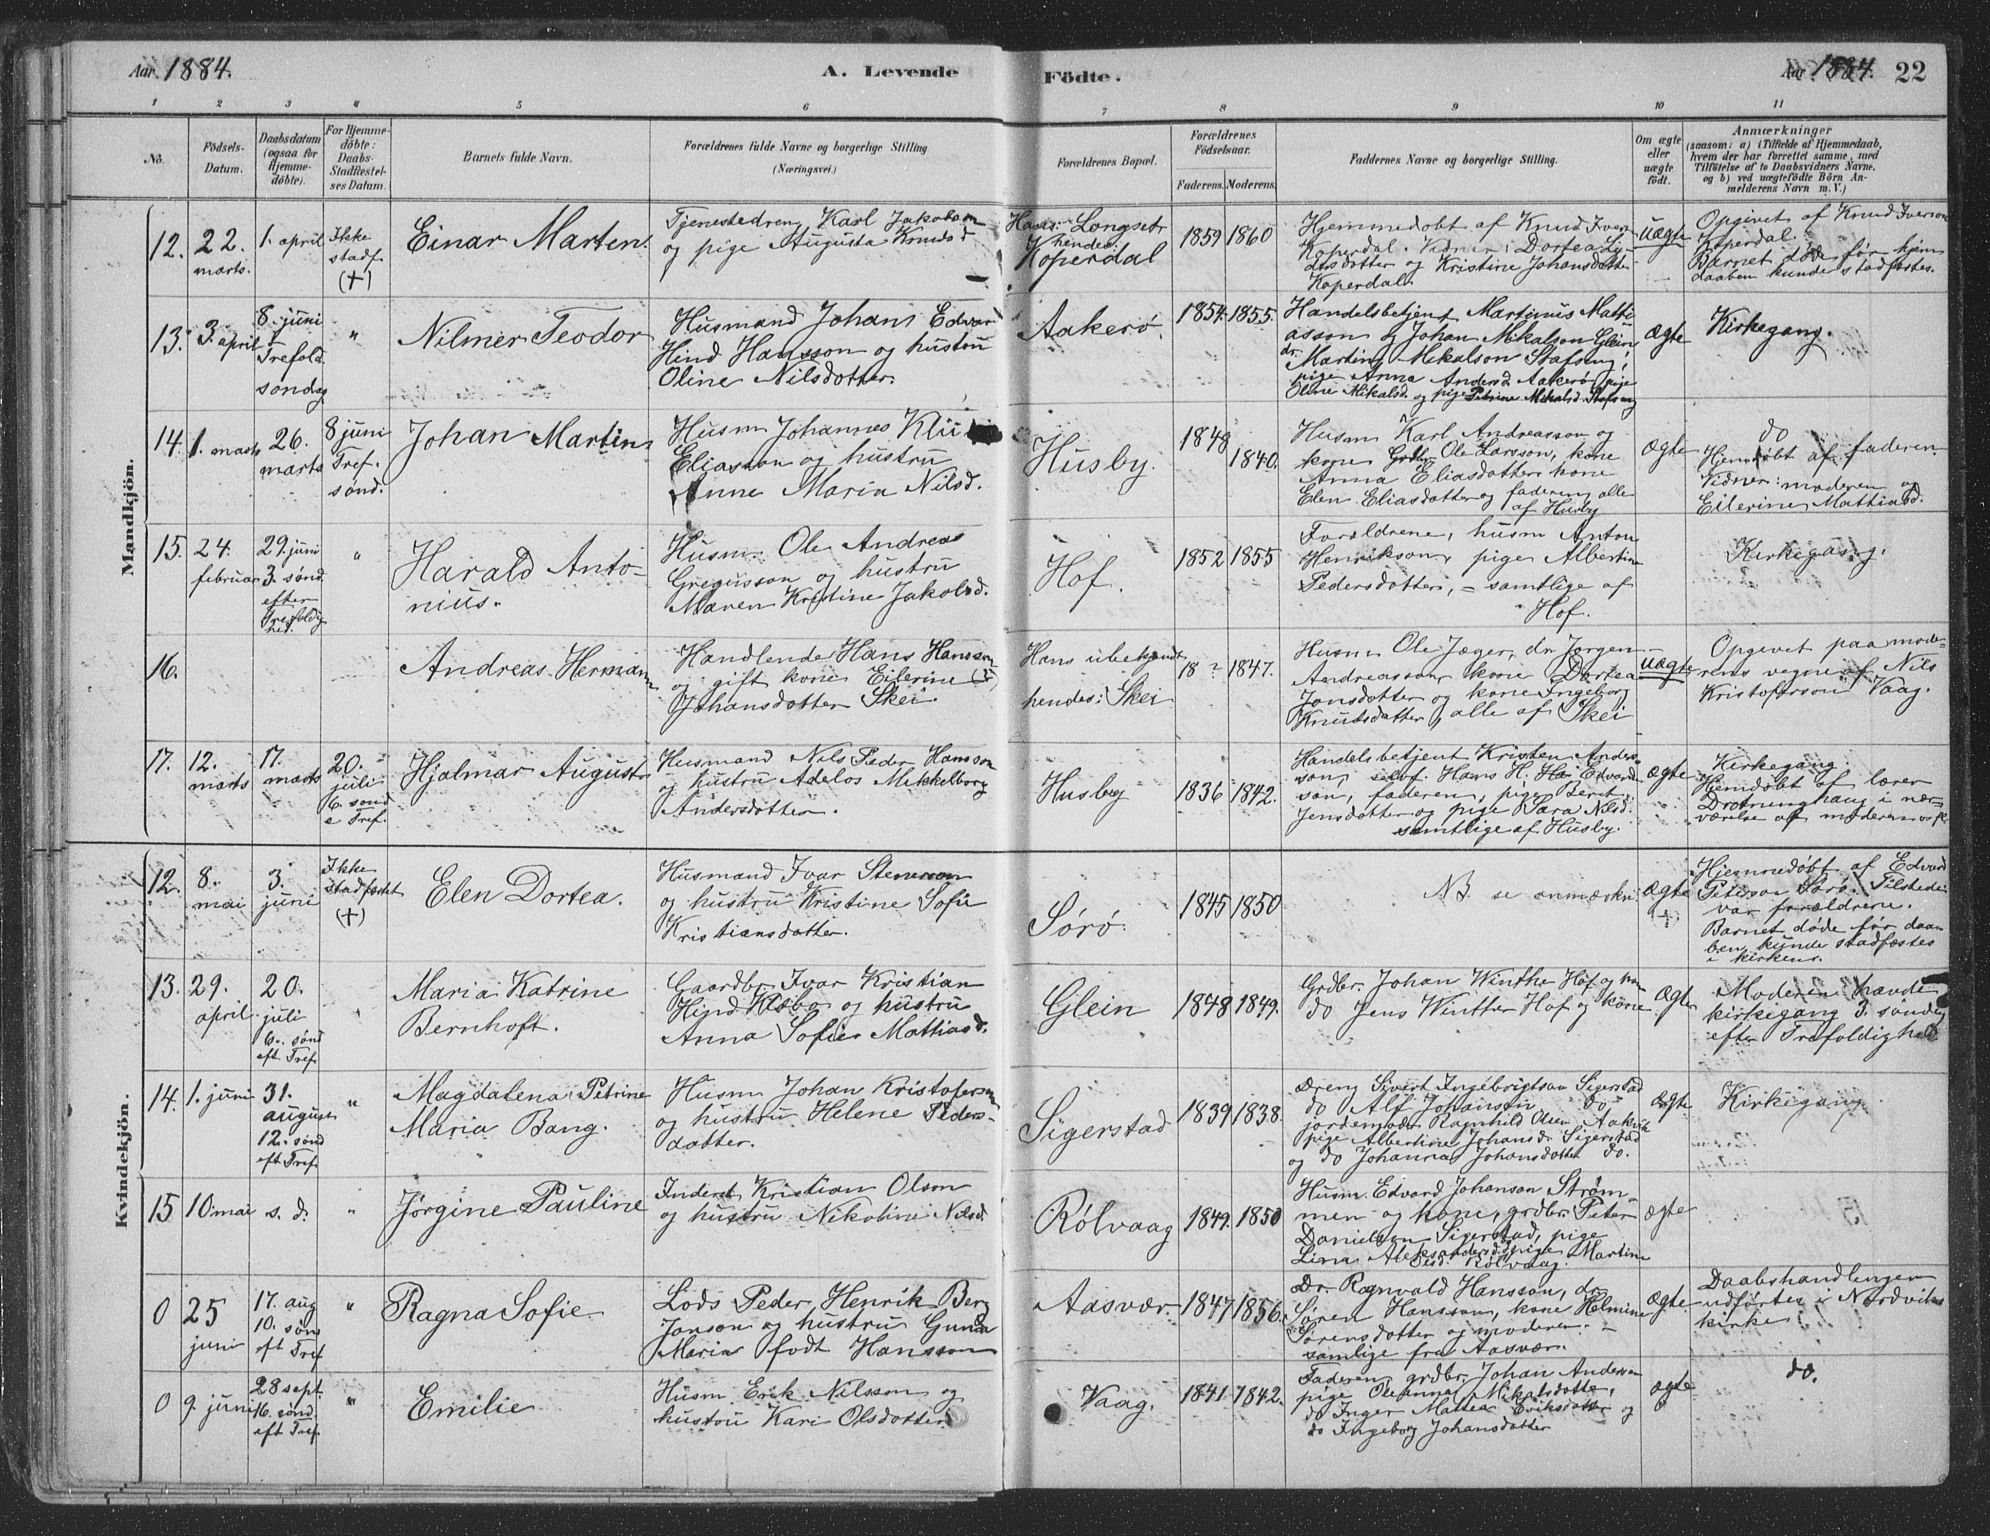 Aar 1884.
A. Levende
Födte.
Aar 1884. 22
1 2 3 4 5 6 7 8 9 10 11
No.
Födsels-
Datum.
Daabsdatum
(ogsaa for
Hjemme-
döbte).
For Hjemme-
döbte:
Daabs-
Stadfæstel-
ses Datum.
Barnets fulde Navn.
Forældrenes fulde Navne og borgerlige Stilling.
(Næringsvei.)
Forældrenes Bopæl.
Forældrenes
Födselsaar.
Faderens. Moderens.
Faddernes Navne og borgerlige Stilling.
Om ægte
eller
uægte
födt.
Anmærkninger
(saasom: a) i Tilfælde af Hjemmedaab,
hvem der har forrettet samme, med
Tilföielse af to Daabsvidners Navne.
og b) ved uægtefödte Börn An-
melderens Navn m. V.)
Mandkjön.
12. 22.
marts.
1. april
Ikke
stadf.
(+)
Einar Marten.
Tjenestedreng Karl Jakobson
og pige Augusta Knudsd
Hans: Longset
hendes:
Koperdal
1859 1860
Hjemmedøbt af Knud Iverson
Koperdal. Vidner: Dortea
og Kristine Johansdotter
Koperdal
uægte
Opgivet af Knud Iverson
Koperdal.
Barnet døde før hjem
daaben kunde stadfæstes.
13. 3. april
8. juni
Trefold.
søndag
"
Nilmer Teodor
Husmand Johans Edvar
Hind Hansson og hustru
Oline Nilsdotter.
Aakerø.
1854. 1855.
Handelsbetjent Martinus Matti
asson og Johan Mikalson Glein
dr. Martin Mikalson Stafseng,
pige Anna Andersd. Aakerø, pige
Oline Mikalsd. og pige Petrine Mikalsd. Stafseng
ægte
Kirkegang.
14. 1. marts
26.
marts
8 juni
Tref.
sønd.
Johan Martin
Husm Johannes
Eliasson og hustru
Anne Maria Nilsd.
Husby.
1848
1840.
Husm Karl Andreasson og
kone Ole Larsson, kone
Anna Eliasdotter, kone
Elen Eliasdotter og faderen, alle
af Husby
ægte
do
Hjemdøbt af faderen
Vidner: moderen og
Eilerine Mathiasd.
15. 24.
februar
29. juni
3. sønd.
efter
Trefoldig
het.
"
Harald Anto-
nius.
Husm. Ole Andreas
Gregusson og hustru
Maren Kristine Jakobsd.
Hof.
1852 1855
Forældrene, husm Anton
Henrikson, pige Albertine
Pedersdotter, – samtlige af
Hof.
Kirkegang.
16.
Andreas Herman
Handlende Hans Hansson
og gift kone Eilerine
Johansdotter Skei
Hans ubekjendt
hendes: Skei
18 ? 1847.
Husm Ole Jæger, dr Jørgen
Andreasson, kone Dortea
Jonsdotter og kone Ingeborg
Knutsdatter, alle af Skei
uægte
Opgivet paa mode-
rens vegne af Nils
Kristoferson Vaag.
17. 12.
marts
17.
marts
20.
juli
6. sønd
e Tref.
Hjalmar August
Husmand Nils Peder Hansson
og hustru Adelos Mekkelborg
Andersdotter.
Husby
1836 1842.
Handelsbetjent Kristen Anders-
son, selvf. Hans H. Edvard
son, faderen, pige Beret
Jensdotter og pige Sara Nilsd.
samtlige af Husby.
ægte
Kirkegang.
Hjemdøbt af lærer
Drotninghaug i nær-
værelse af moderen
Kvindekjön.
12. 8.
mai
3.
juni
Ikke
stadfæstet
(+)
Elen Dortea.
Husmand Ivar Stenson
og hustru Kristine Sofie
Kristiansdotter.
Sørø.
1845 1850
NB. se anmærkn.
ægte
(+)
Hjemmedøbt af Edvard
Peterson Sørø. Tilstede
var forældrene.
Barnet døde før daa
ben kunde stadfæstes
i kirken.
13. 29.
april.
20.
juli
6. sønd
eft Tref.
Maria Katrine
Bernhoft.
Gaardbr. Ivar Kristian
Hind Klæbo og hustru
Anna Sofie Mathiasd.
Glein
1848 1849.
Grdbr. Johan Winther Hof og
do Jens Winther Hof og kone
ægte
Moderen havde
kirkegang 3. søndag
efter Trefoldighed
14. 1. juni
31.
august
12. sønd
eft Tref.
"
Magdalena Petrine
Maria Bang.
Husm Johan Kristoferson
og hustru Helene Peders-
datter.
Sigerstad
1839 1838.
Dreng Sivert Ingebrigtson Sigerstad
do Alf Johanson do
jordemoder Ragnhild Olsen Aakvik
pige Albertine Johansd. Sigerstad
og do Johanna Johansdotter do.
ægte
Kirkegang
15 10 mai s. d. "
Jørgine Pauline
Inderst Kristian Olson
og hustru Nikoline Nilsd.
Rølvaag
1849. 1850
Husm. Edvard Johanson Strøm-
men og kone, grdbr. Peter
Danielson Sigerstad, pige
Lina Aleksandersd. pige Martine
Olsd. Rølvaag.
ægte
0 25
juni
17. aug
10. sønd
eft Tref
"
Ragna Sofie
Lods Peder Henrik Berg
Jonson og hustru Gunda
Maria født Hansson
Aasvær.
1847 1856.
Dr. Rognvald Hansson, do
Søren Hansson, kone Helmine
Sørensdotter og moderen. –
samlige fra Aasvær.
ægte
Daabshandlingen
udførtes i Nordviks
kirke
0 9. juni
28 sept.
16. sønd.
eft Tref.
"
Emilie
Husm Erik Nilsson og
hustru Kari Olsdotter
Vaag.
1841 1842.
Faderen, grdbr. Johan Anderson
pige Oleanna Mikalsdotter,
do Inger Mattea Eriksdotter og
do Ingeborg Johansdotter
ægte
do.